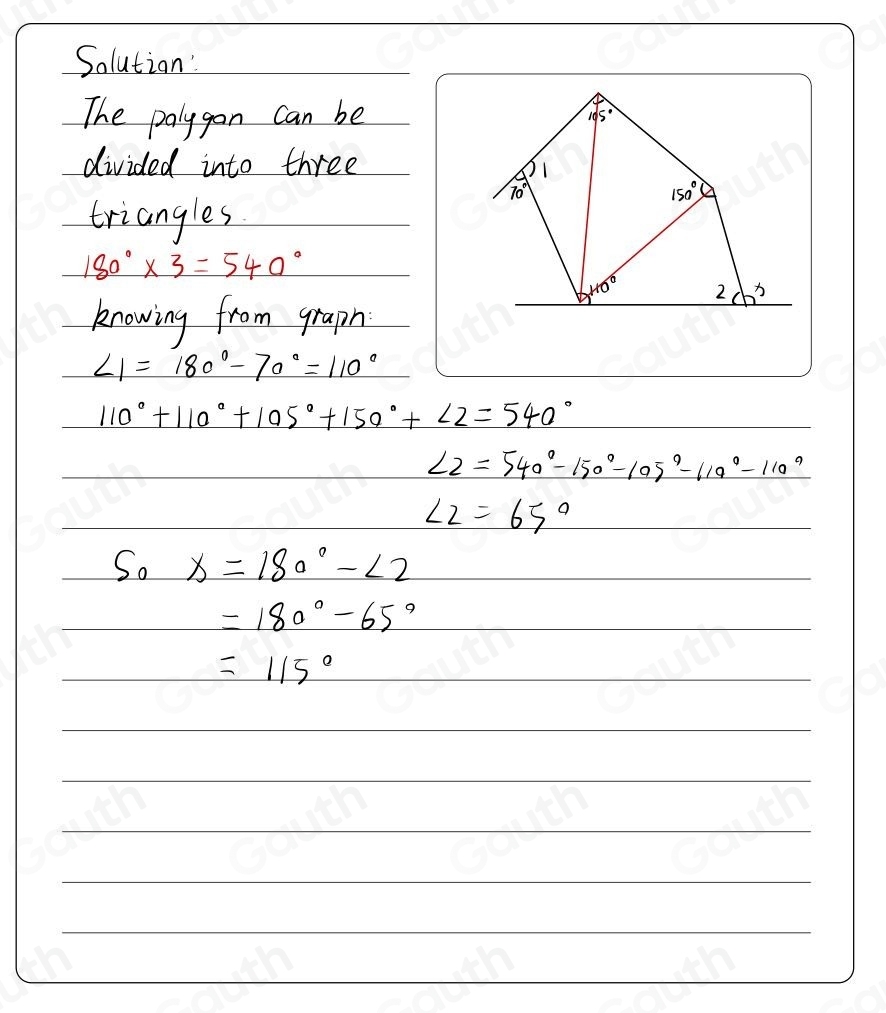 Solution:
The polygon can be
divided into three
triangles.
180° × 3 = 540°
knowing from graph:
∠1 = 180° - 70° = 110°
110° + 110° + 105° + 150° + ∠2 = 540°
∠2 = 540° - 150° - 105° - 110° - 110°
∠2 = 65°
So x = 180° - ∠2
= 180° - 65°
= 115°
105°
1
70°
150°
110°
2
x
Gauth